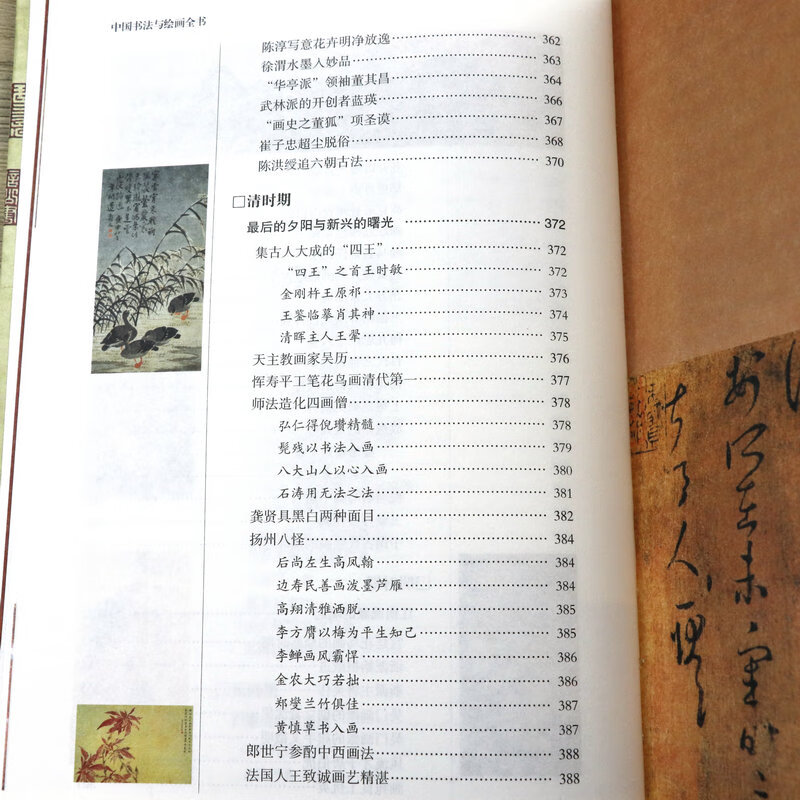 中国书法与绘画全书
陈淳写意花卉明净放逸 362
徐渭水墨入妙品 363
“华亭派”领袖董其昌 364
武林派的开创者蓝瑛 366
“画史之董狐”项圣谟 367
崔子忠超尘脱俗 368
陈洪绶追六朝古法 370
□清时期
最后的夕阳与新兴的曙光 372
集古人大成的“四王” 372
“四王”之首王时敏 372
金刚杵王原祁 373
王鉴临摹肖其神 374
清晖主人王翚 375
天主教画家吴历 376
恽寿平工笔花鸟画清代第一 377
师法造化四画僧 378
弘仁得倪瓒精髓 378
髡残以书法入画 379
八大山人以心入画 380
石涛用无法之法 381
龚贤具黑白两种面目 382
扬州八怪 384
后尚左生高凤翰 384
边寿民善画泼墨芦雁 384
高翔清雅洒脱 385
李方膺以梅为平生知己 385
李鱓画风霸悍 386
金农大巧若拙 386
郑燮兰竹俱佳 387
黄慎草书入画 387
郎世宁参酌中西画法 388
法国人王致诚画艺精湛 388